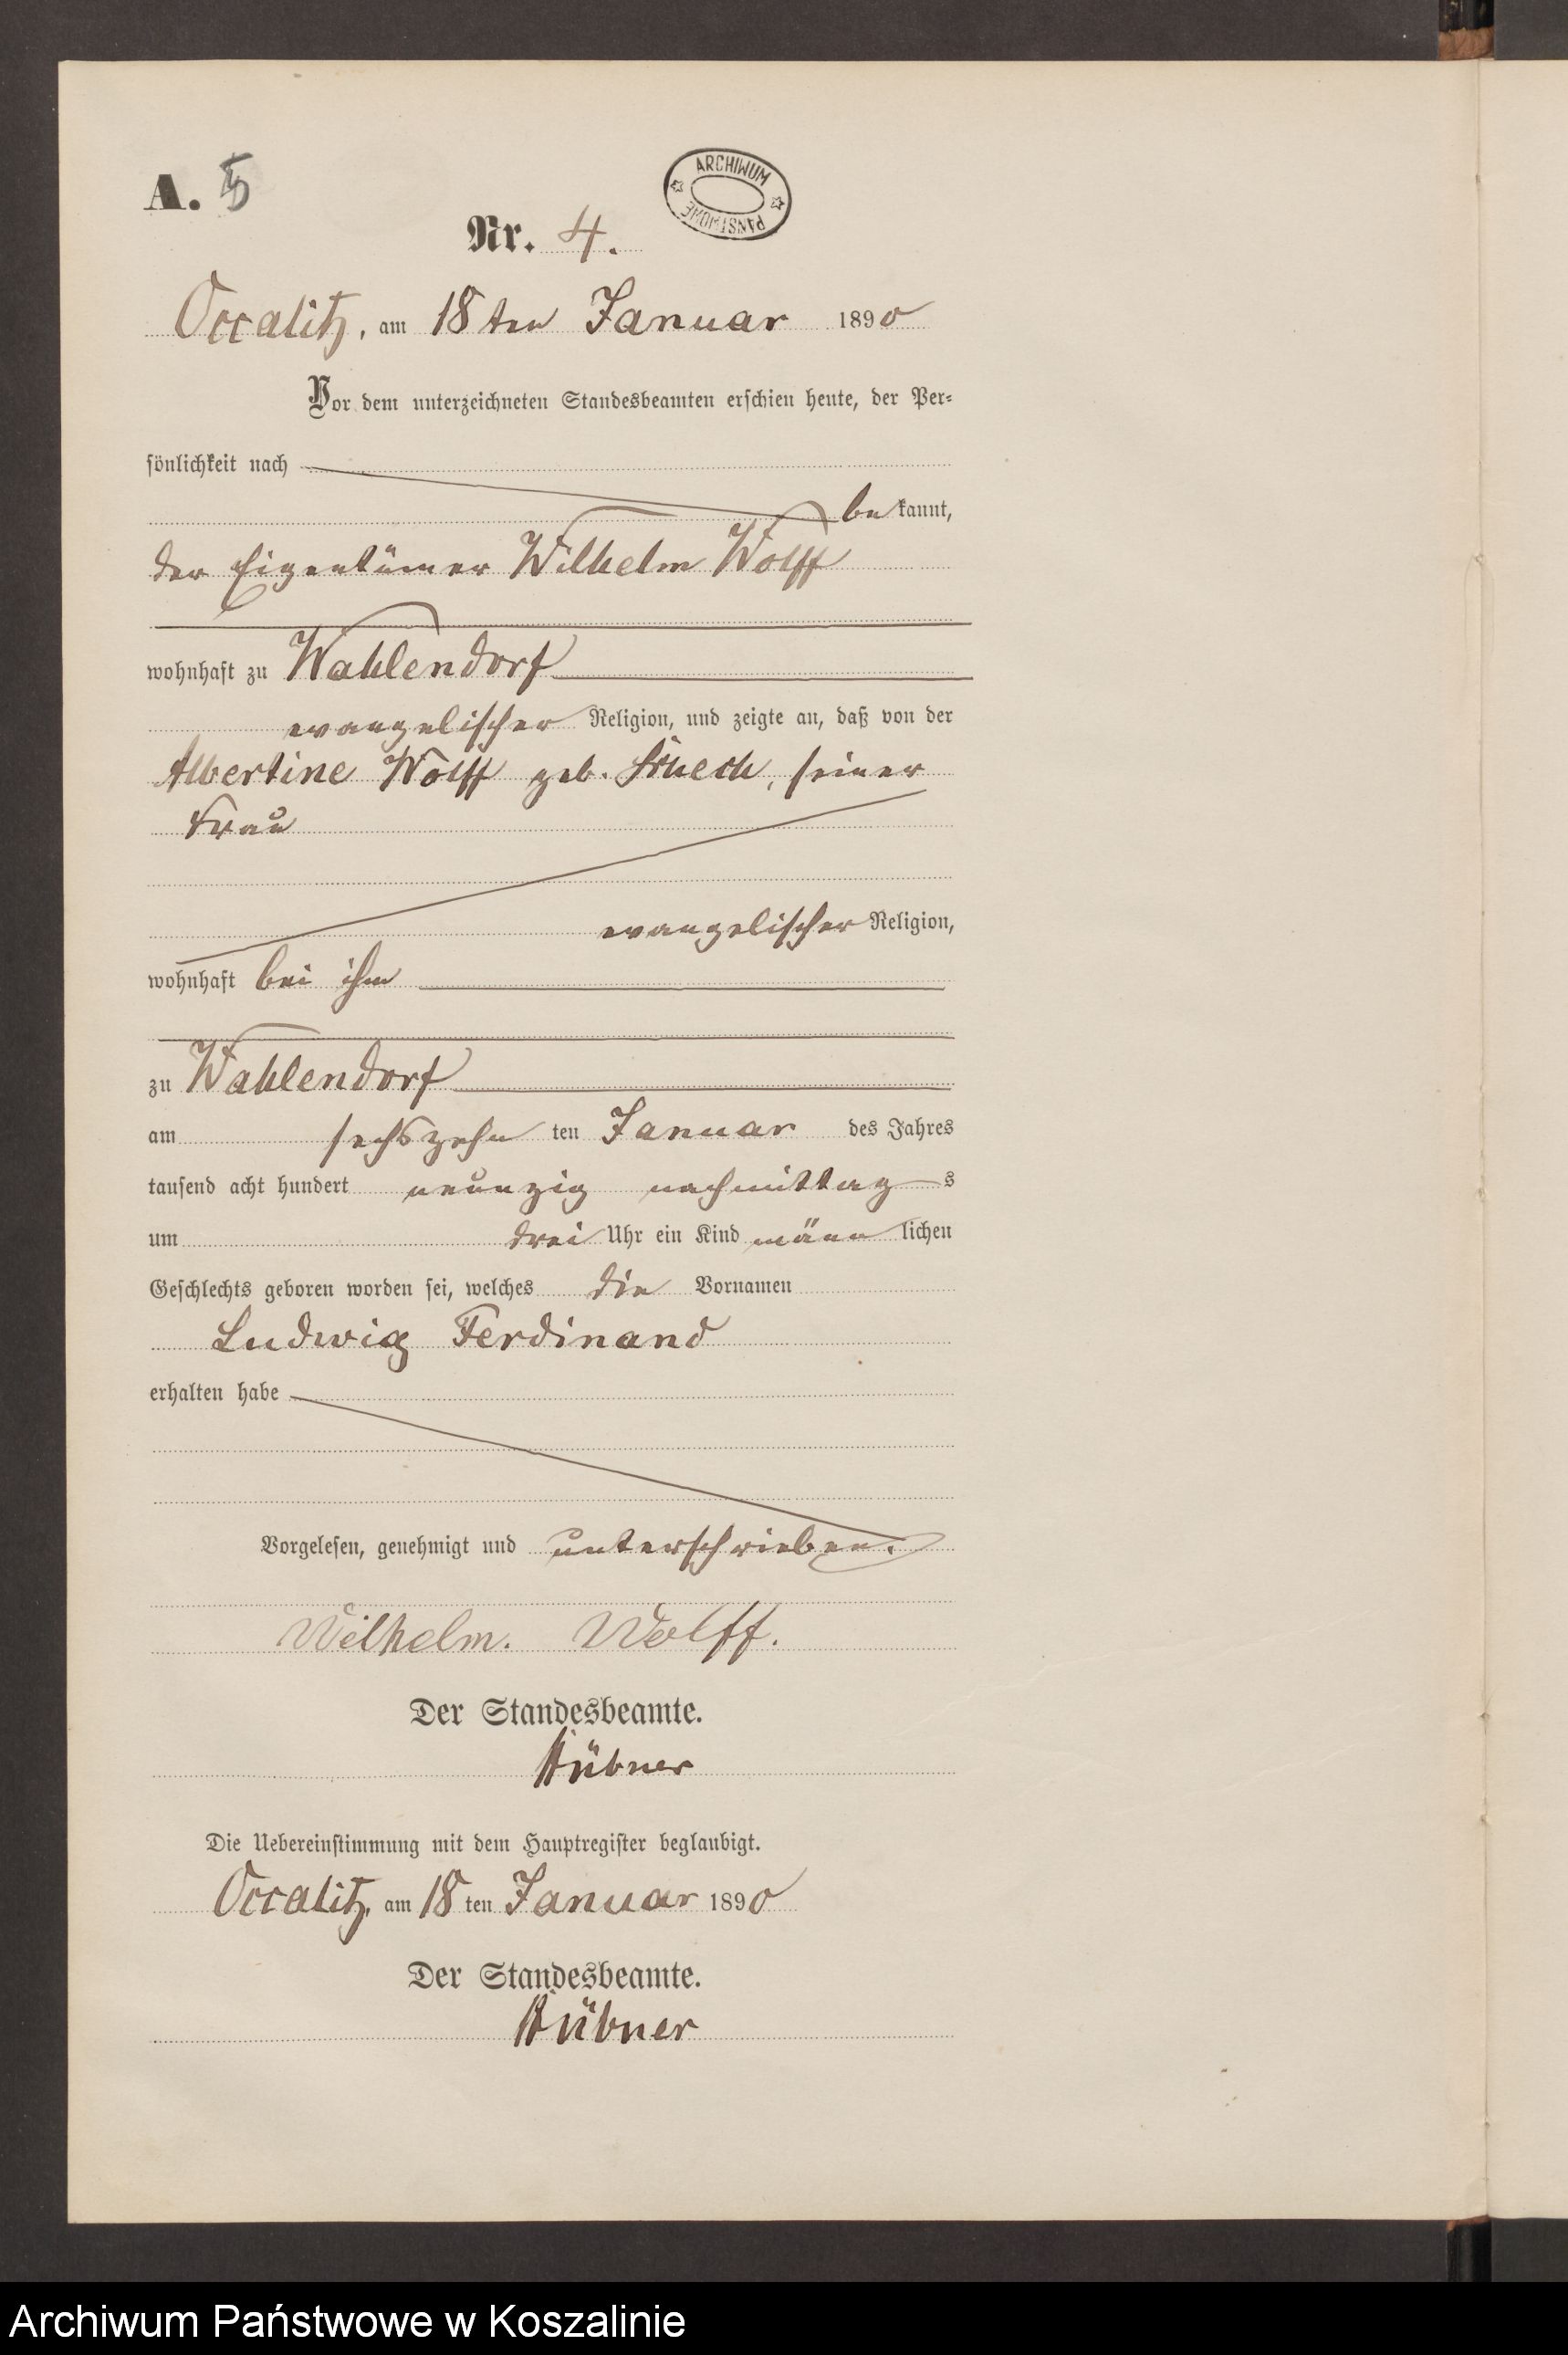 A. 5
ARCHIWUM PAŃSTWOWE
Nr. 4.
Occalitz, am 18ten Januar 1890
Vor dem unterzeichneten Standesbeamten erschien heute, der Per-
sönlichkeit nach
bekannt,
der Eigentümer Wilhelm Wolff
wohnhaft zu Wahlendorf
evangelischer Religion, und zeigte an, daß von der
Albertine Wolff geb. , seiner
Frau
evangelischer Religion,
wohnhaft bei ihm
zu Wahlendorf
am sechszehn ten Januar des Jahres
tausend acht hundert neunzig nachmittags
um drei Uhr ein Kind männlichen
Geschlechts geboren worden sei, welches die Vornamen
Ludwig Ferdinand
erhalten habe
Vorgelesen, genehmigt und unterschrieben.
Wilhelm. Wolff.
Der Standesbeamte.
Hübner
Die Uebereinstimmung mit dem Hauptregister beglaubigt.
Occalitz, am 18 ten Januar 1890
Der Standesbeamte.
Hübner
Archiwum Państwowe w Koszalinie